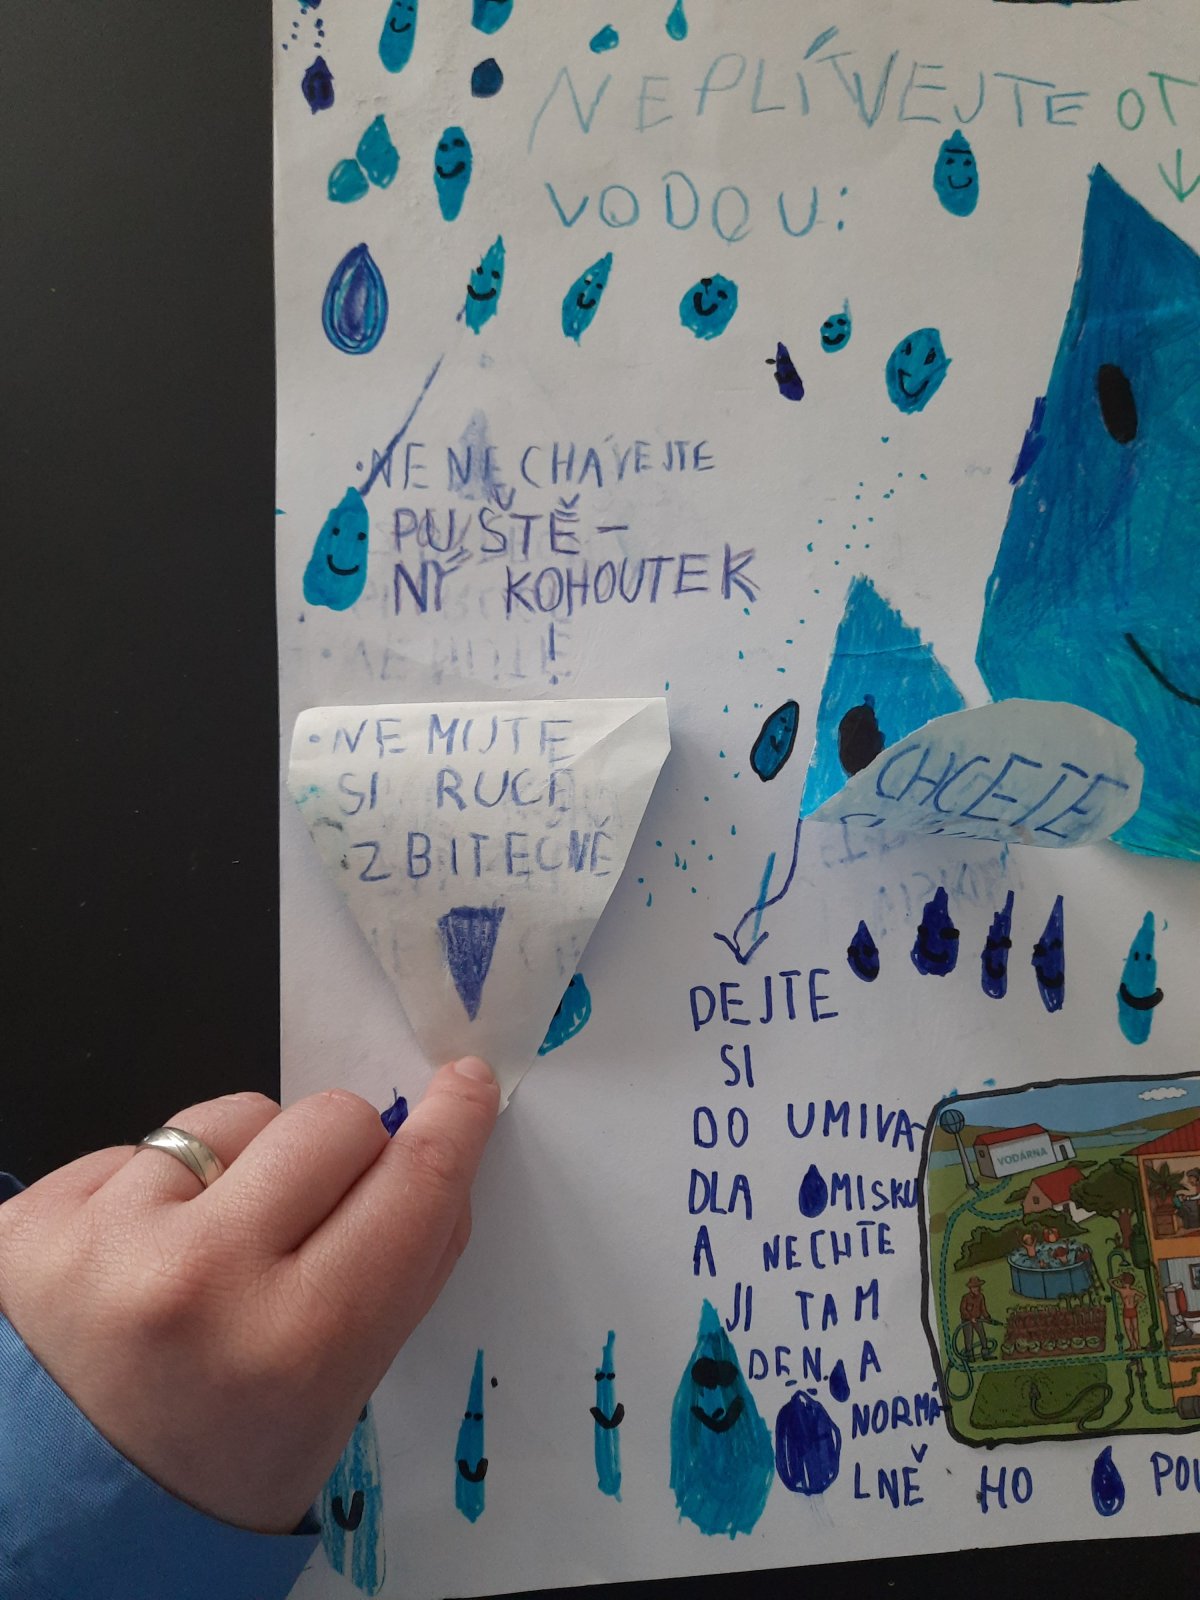 NEPLÍTVEJTE OT
VODOU:
• NENECHÁVEJTE
PUŠTĚ-
NÝ KOHOUTEK
!
• NEMIJTE
SI RUCE
ZBITEČNĚ
CHCETE
DEJTE
SI
DO UMIVA-
DLA MISKU
A NECHTE
JI TAM
DEN. A
NORMÁ-
LNĚ HO POU
VODÁRNA